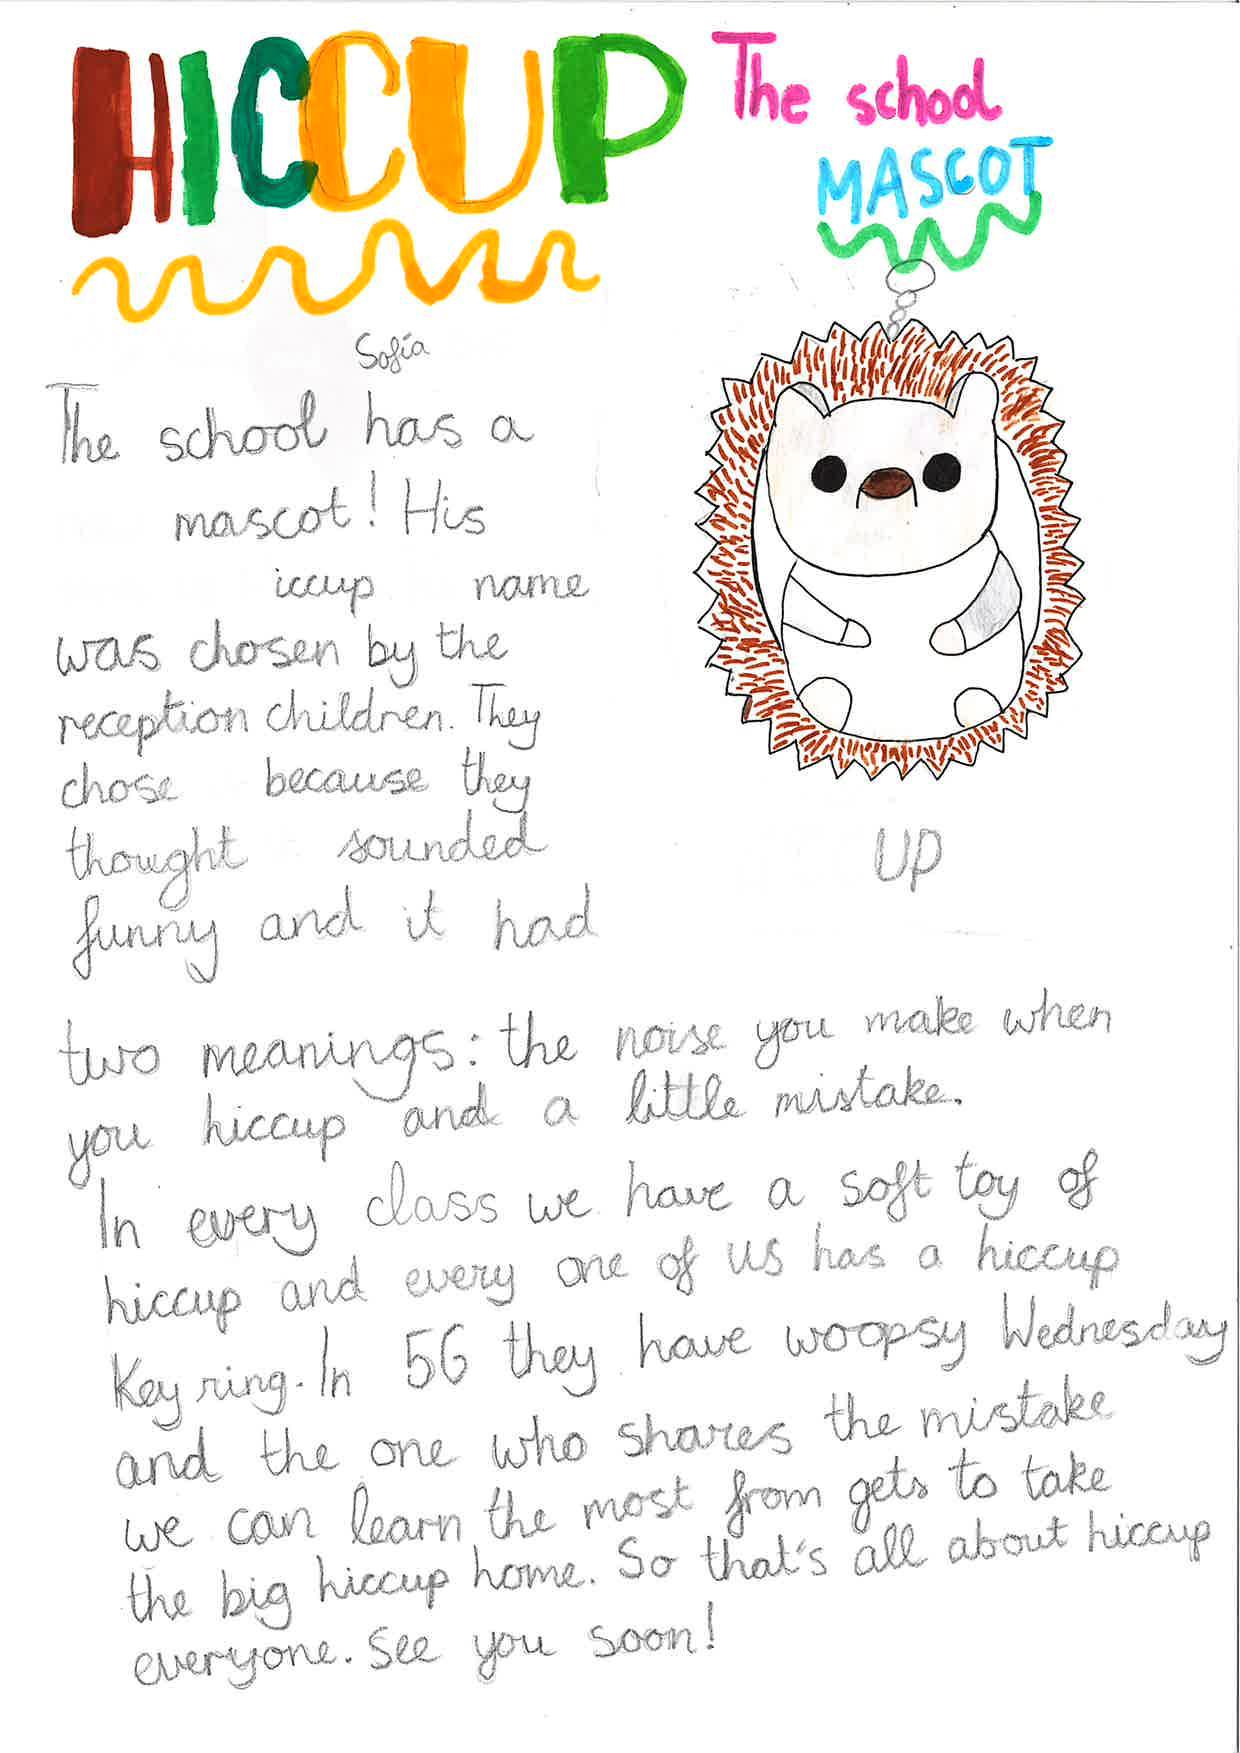 HICCUP The school
MASCOT
Sofía
The school has a
mascot! His
iccup name
was chosen by the
reception children. They
chose because they
thought sounded
funny and it had
UP
two meanings: the noise you make when
you hiccup and a little mistake.
In every class we have a soft toy of
hiccup and every one of us has a hiccup
Key ring. In 5G they have woopsy Wednesday
and the one who shares the mistake
we can learn the most from gets to take
the big hiccup home. So that's all about hiccup
everyone. See you soon!